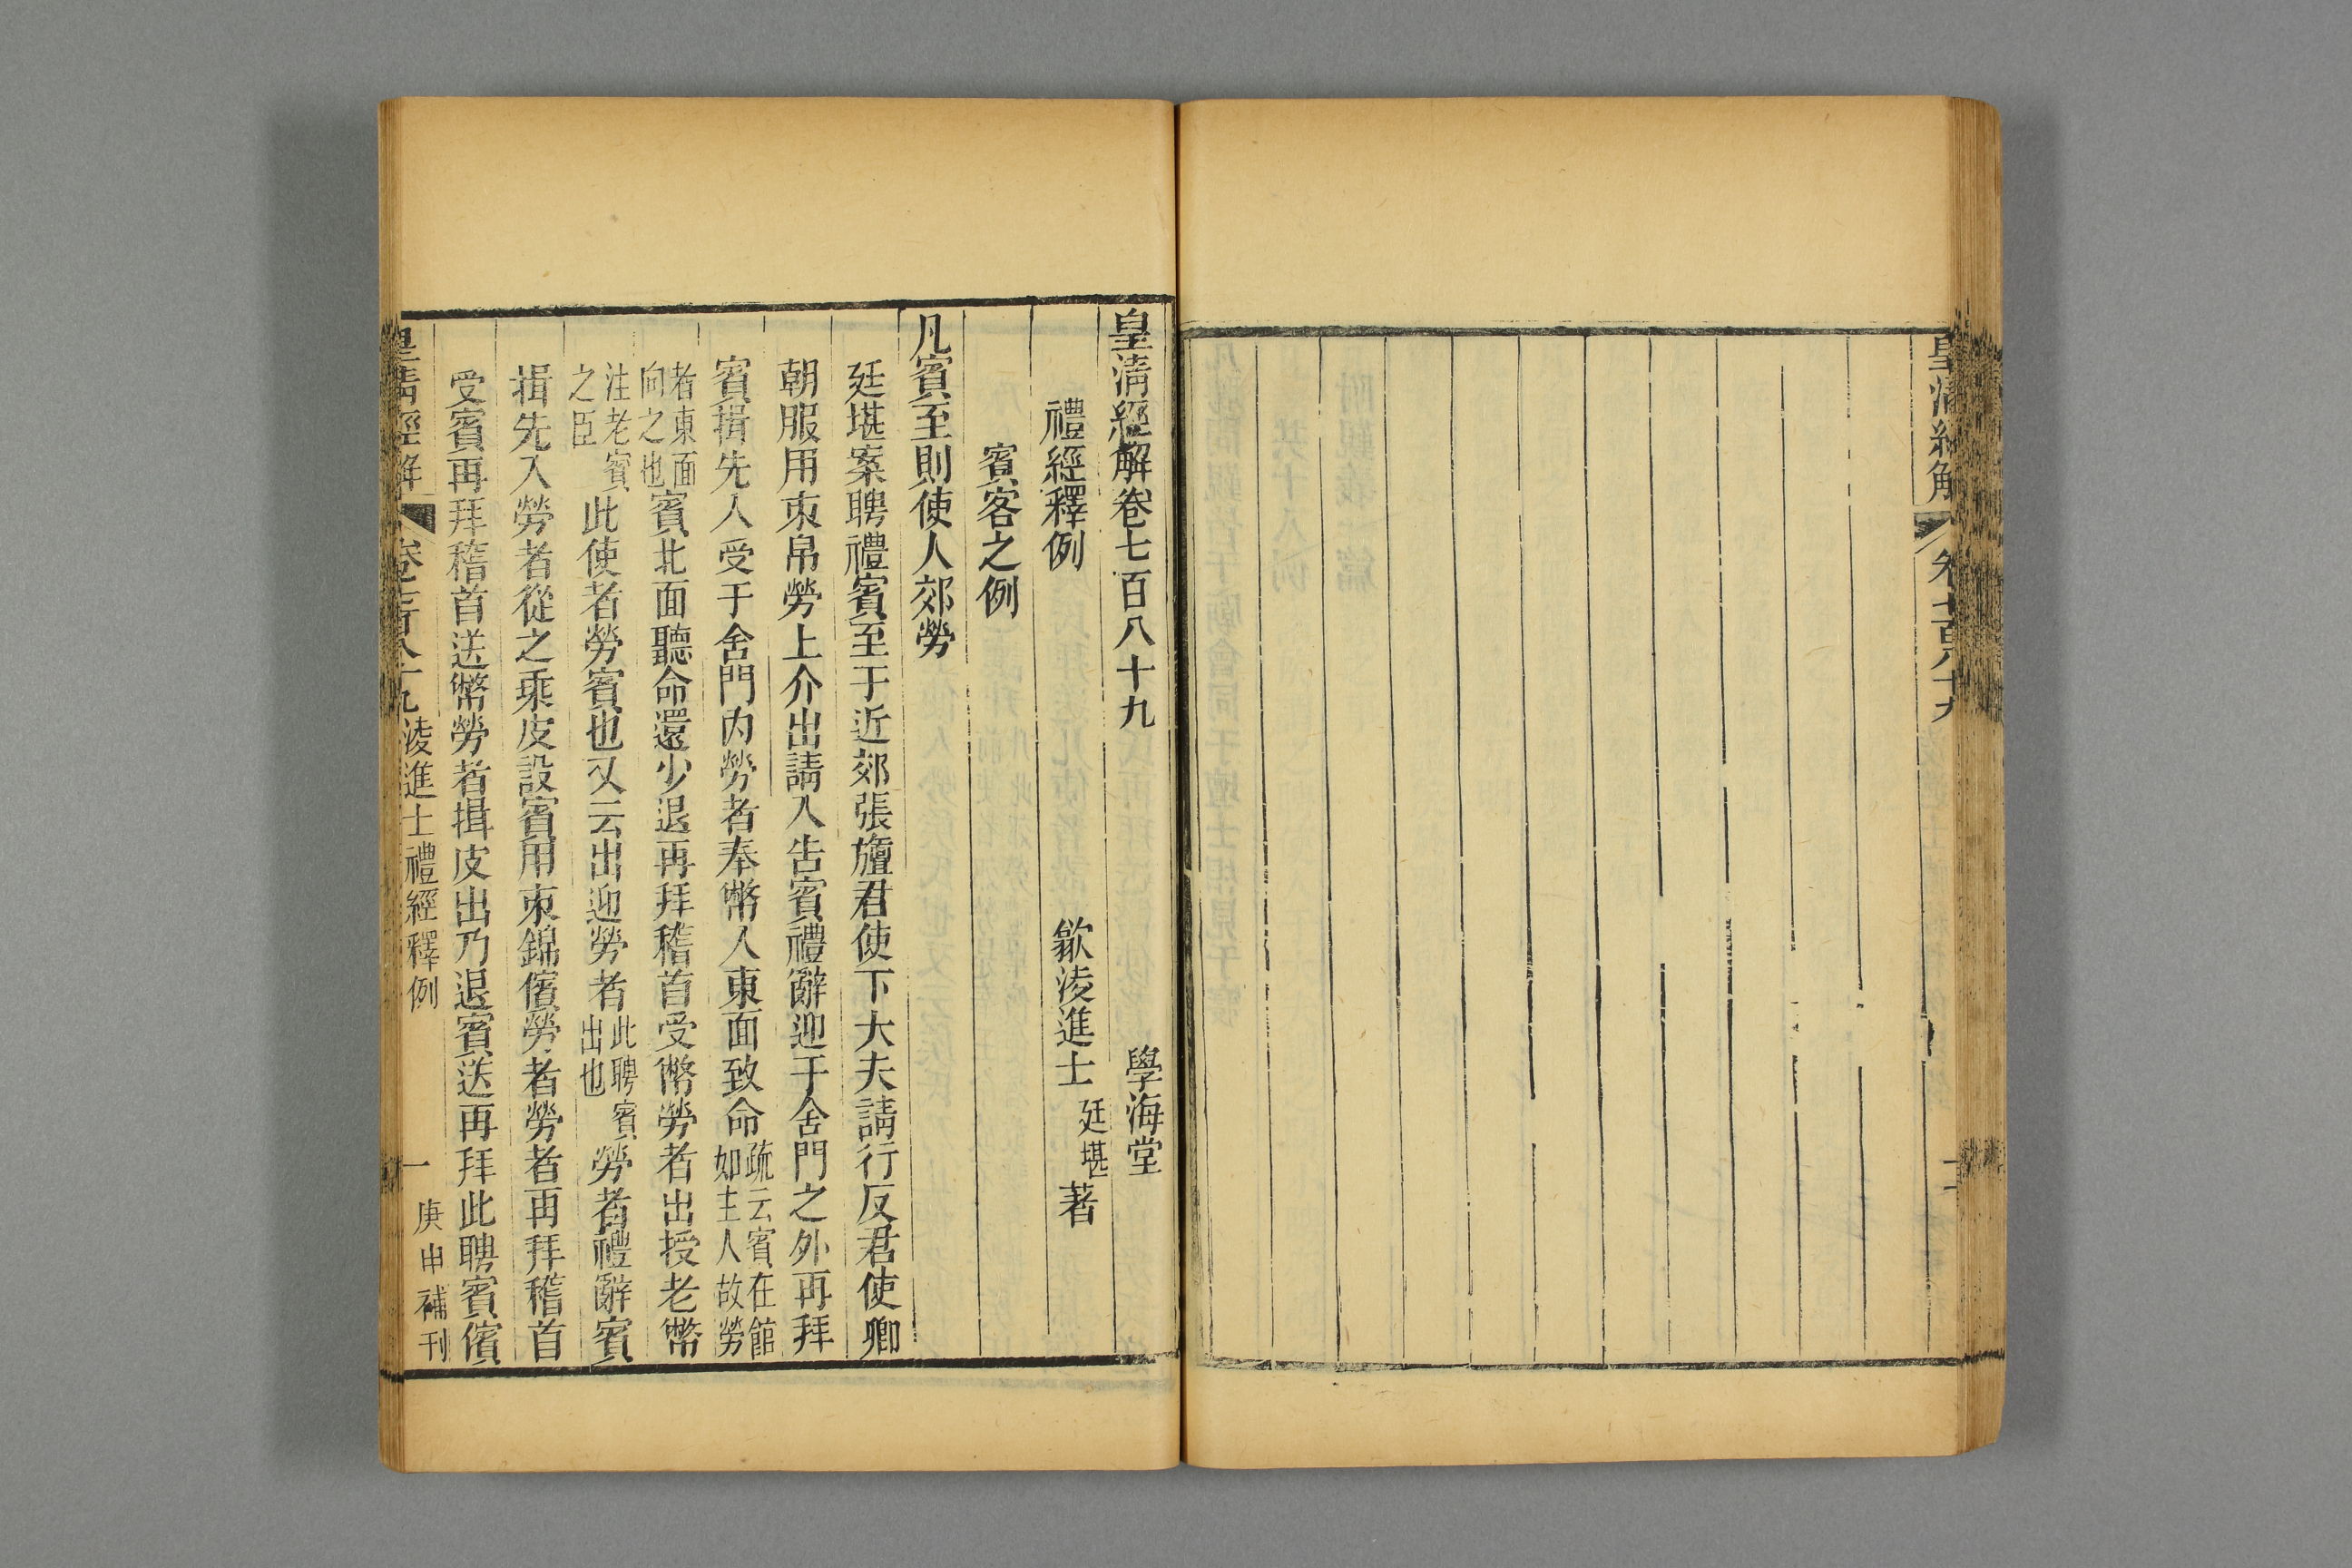 皇清經解
皇清經解卷七百八十九
學海堂
禮經釋例
歙淩進士廷堪著
賓客之例
凡賓至則使人郊勞
廷堪案聘禮賓至于近郊張旜君使下大夫請行反君使卿
朝服用束帛勞上介出請入告賓禮辭迎于舍門之外再拜
賓揖先入受于舍門內勞者奉幣入東面致命疏云賓在館如主人故勞
者東面向之也賓北面聽命還少退再拜稽首受幣勞者出授老幣
注老賓之臣此使者勞賓也又云出迎勞者此聘賓出也勞者禮辭賓
揖先入勞者從之乘皮設賓用束錦儐勞者勞者再拜稽首
受賓再拜稽首送幣勞者揖皮出乃退賓送再拜此聘賓儐
皇清經解
卷七百八十九
淩進士禮經釋例
一
庚申補刊